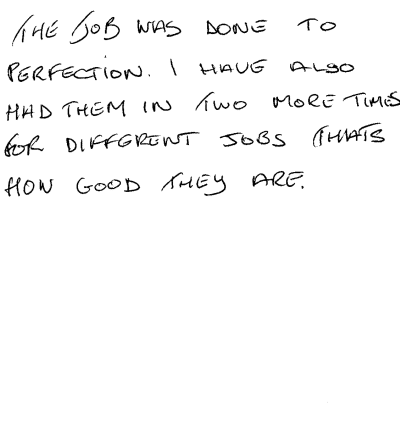 THE JOB WAS DONE TO
PERFECTION. I HAVE ALSO
HAD THEM IN TWO MORE TIMES
FOR DIFFERENT JOBS THATS
HOW GOOD THEY ARE.